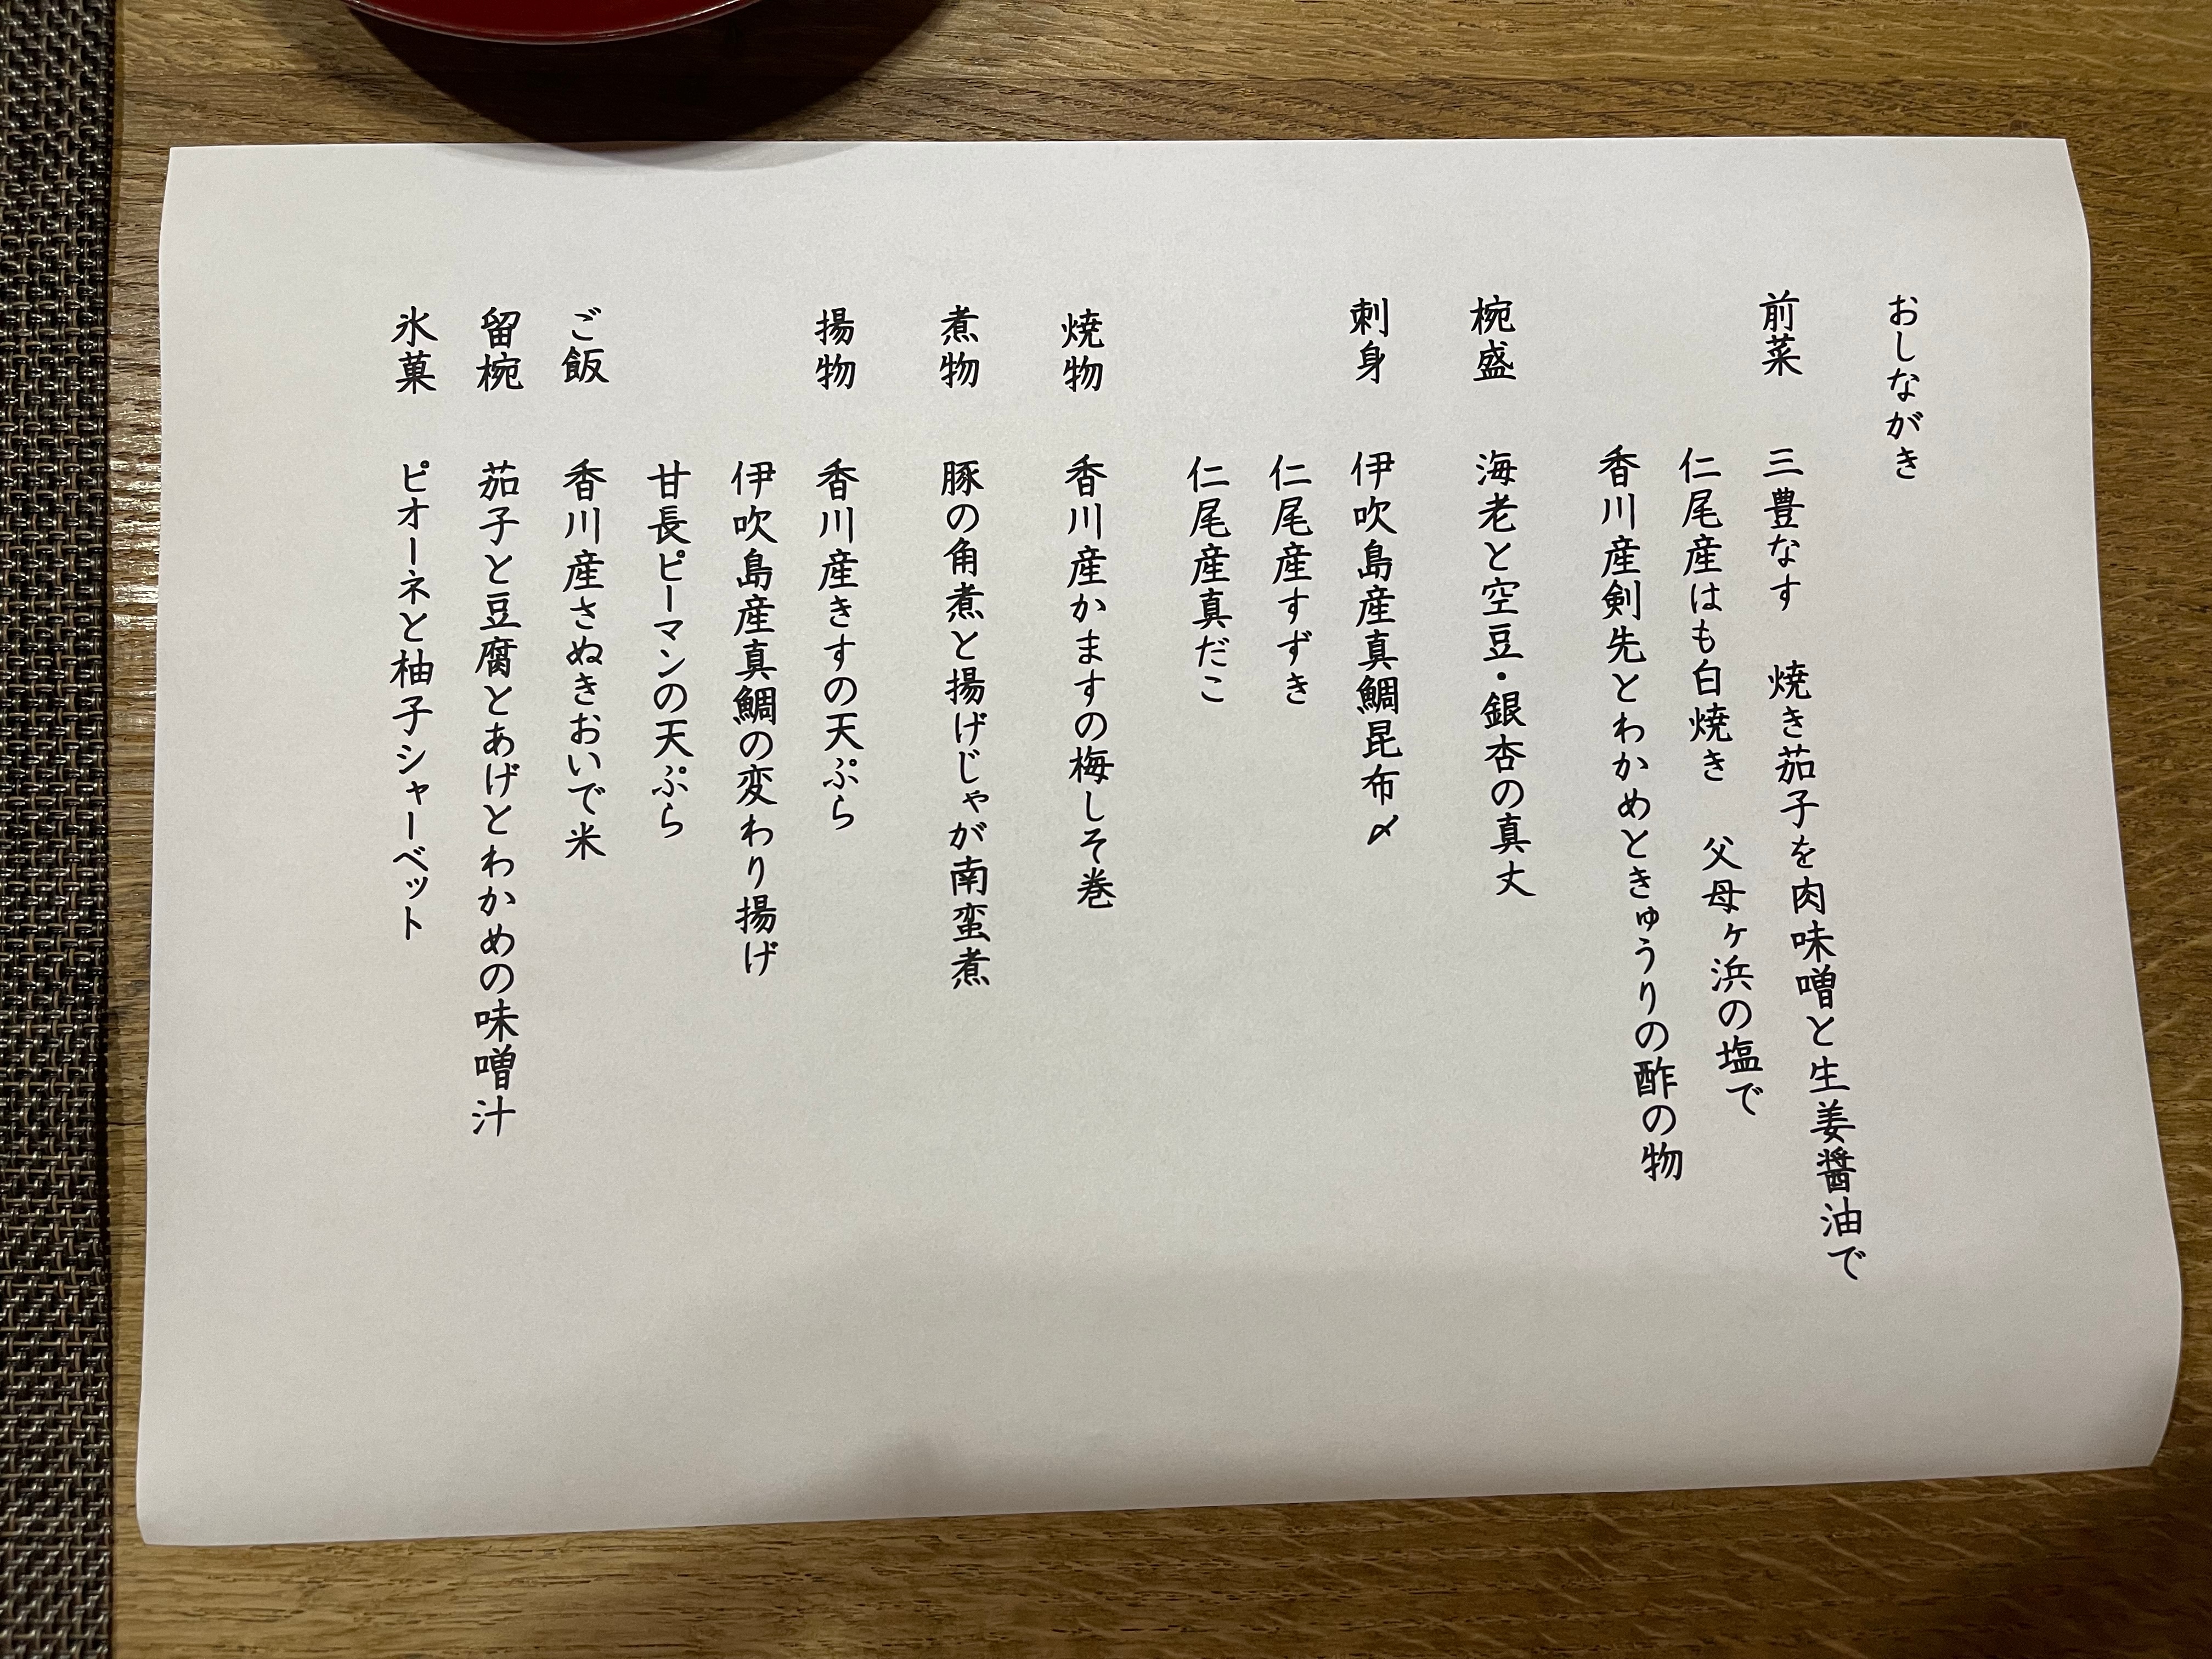 おしながき
前菜 三豊なす 焼き茄子を肉味噌と生姜醤油で
仁尾産はも白焼き 父母ヶ浜の塩で
香川産剣先とわかめときゅうりの酢の物
椀盛 海老と空豆・銀杏の真丈
刺身 伊吹島産真鯛昆布〆
仁尾産すずき
仁尾産真だこ
焼物 香川産かますの梅しそ巻
煮物 豚の角煮と揚げじゃが南蛮煮
揚物 香川産きすの天ぷら
伊吹島産真鯛の変わり揚げ
甘長ピーマンの天ぷら
ご飯 香川産さぬきおいで米
留椀 茄子と豆腐とあげとわかめの味噌汁
氷菓 ピオーネと柚子シャーベット